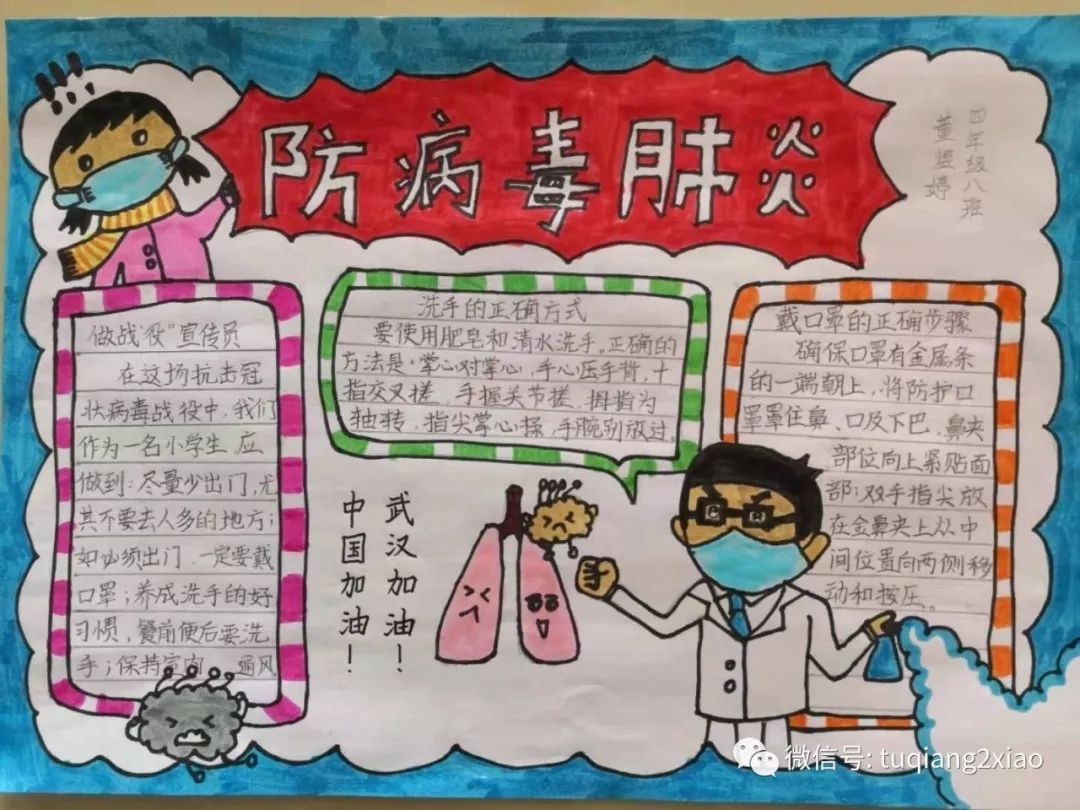 防病毒肺炎
四年级八班
董煜婷
做战"役"宣传员
在这场抗击冠
状病毒战役中,我们
作为一名小学生,应
做到:尽量少出门,尤
其不要去人多的地方;
如必须出门,一定要戴
口罩;养成洗手的好
习惯,餐前便后要洗
手;保持室内 通风
洗手的正确方式
要使用肥皂和清水洗手,正确的
方法是:掌心对掌心,手心压手背,十
指交叉搓,手握关节搓,拇指为
轴转,指尖掌心揉,手腕别放过。
戴口罩的正确步骤
确保口罩有金属条
的一端朝上,将防护口
罩罩住鼻、口及下巴,鼻夹
部位向上紧贴面
部;双手指尖放
在金鼻夹上从中
间位置向两侧移
动和按压。
武汉加油!
中国加油!
微信号: tuqiang2xiao